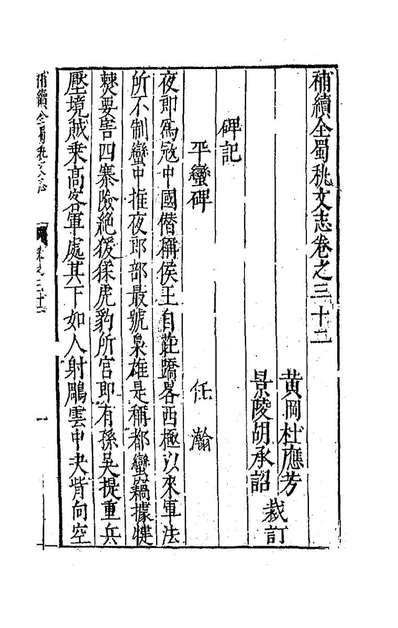 補續全蜀秇文志卷之三十二
黃岡杜應芳
景陵胡承詔
裁訂
碑記
平蠻碑
任瀚
夜郎為寇中國僭稱侯王自莊蹻畧西極以來軍法
所不制蠻中推夜郎部最號梟雄是稱都蠻竊據
㚇要害四寨險絕猨猱虎豹所宮即有孫吳提重兵
壓境越乘高客軍處其下如人射鵰雲中夬背向空
補續全蜀秇文志
卷之三十二
一